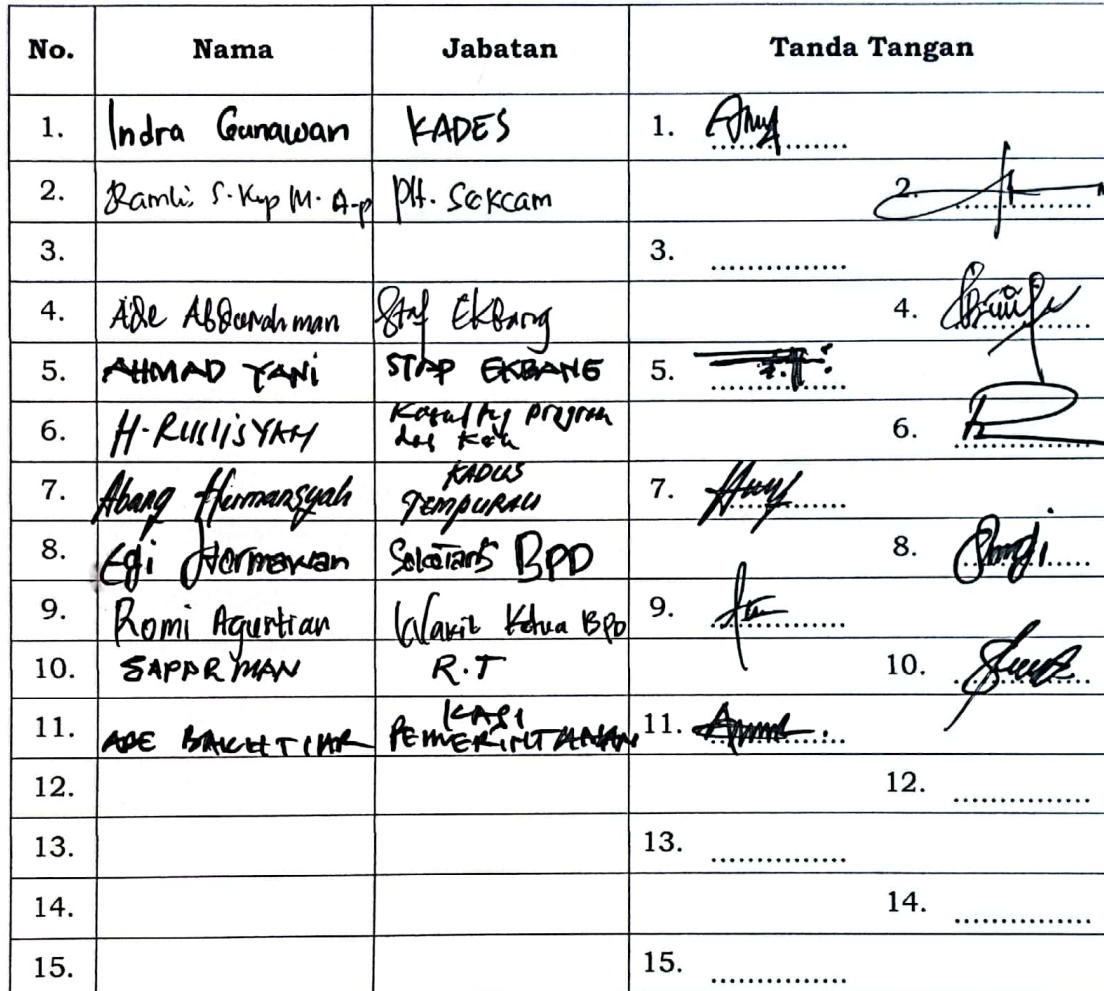 No. Nama Jabatan Tanda Tangan
1. Indra Gunawan KADES 1. ...............
2. Ramli S.Kep M. A-p PH. Sekcam 2. ...............
3. 3. ...............
4. Ade Abdurahman Staf Ekbang 4. ...............
5. AHMAD YANI STAP EKBANG 5. ...............
6. H. RUSLISYAH program 6. ...............
7. Abang Hermansyah KADUS
TEMPURAU 7. ...............
8. Egi Hermawan Sekretaris BPD 8. ...............
9. Romi Agustian Wakil Ketua BPD 9. ...............
10. SAPARMAN R.T 10. ...............
11. ADE BAKHTIAR KASI
PEMERINTAHAN 11. ...............
12. 12. ...............
13. 13. ...............
14. 14. ...............
15. 15. ...............